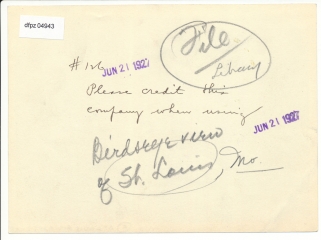 dfpz 04943
File
Library
# 126
JUN 21 1927
Please credit this
company when using
JUN 21 1927
Birdseye view
of St. Louis, Mo.